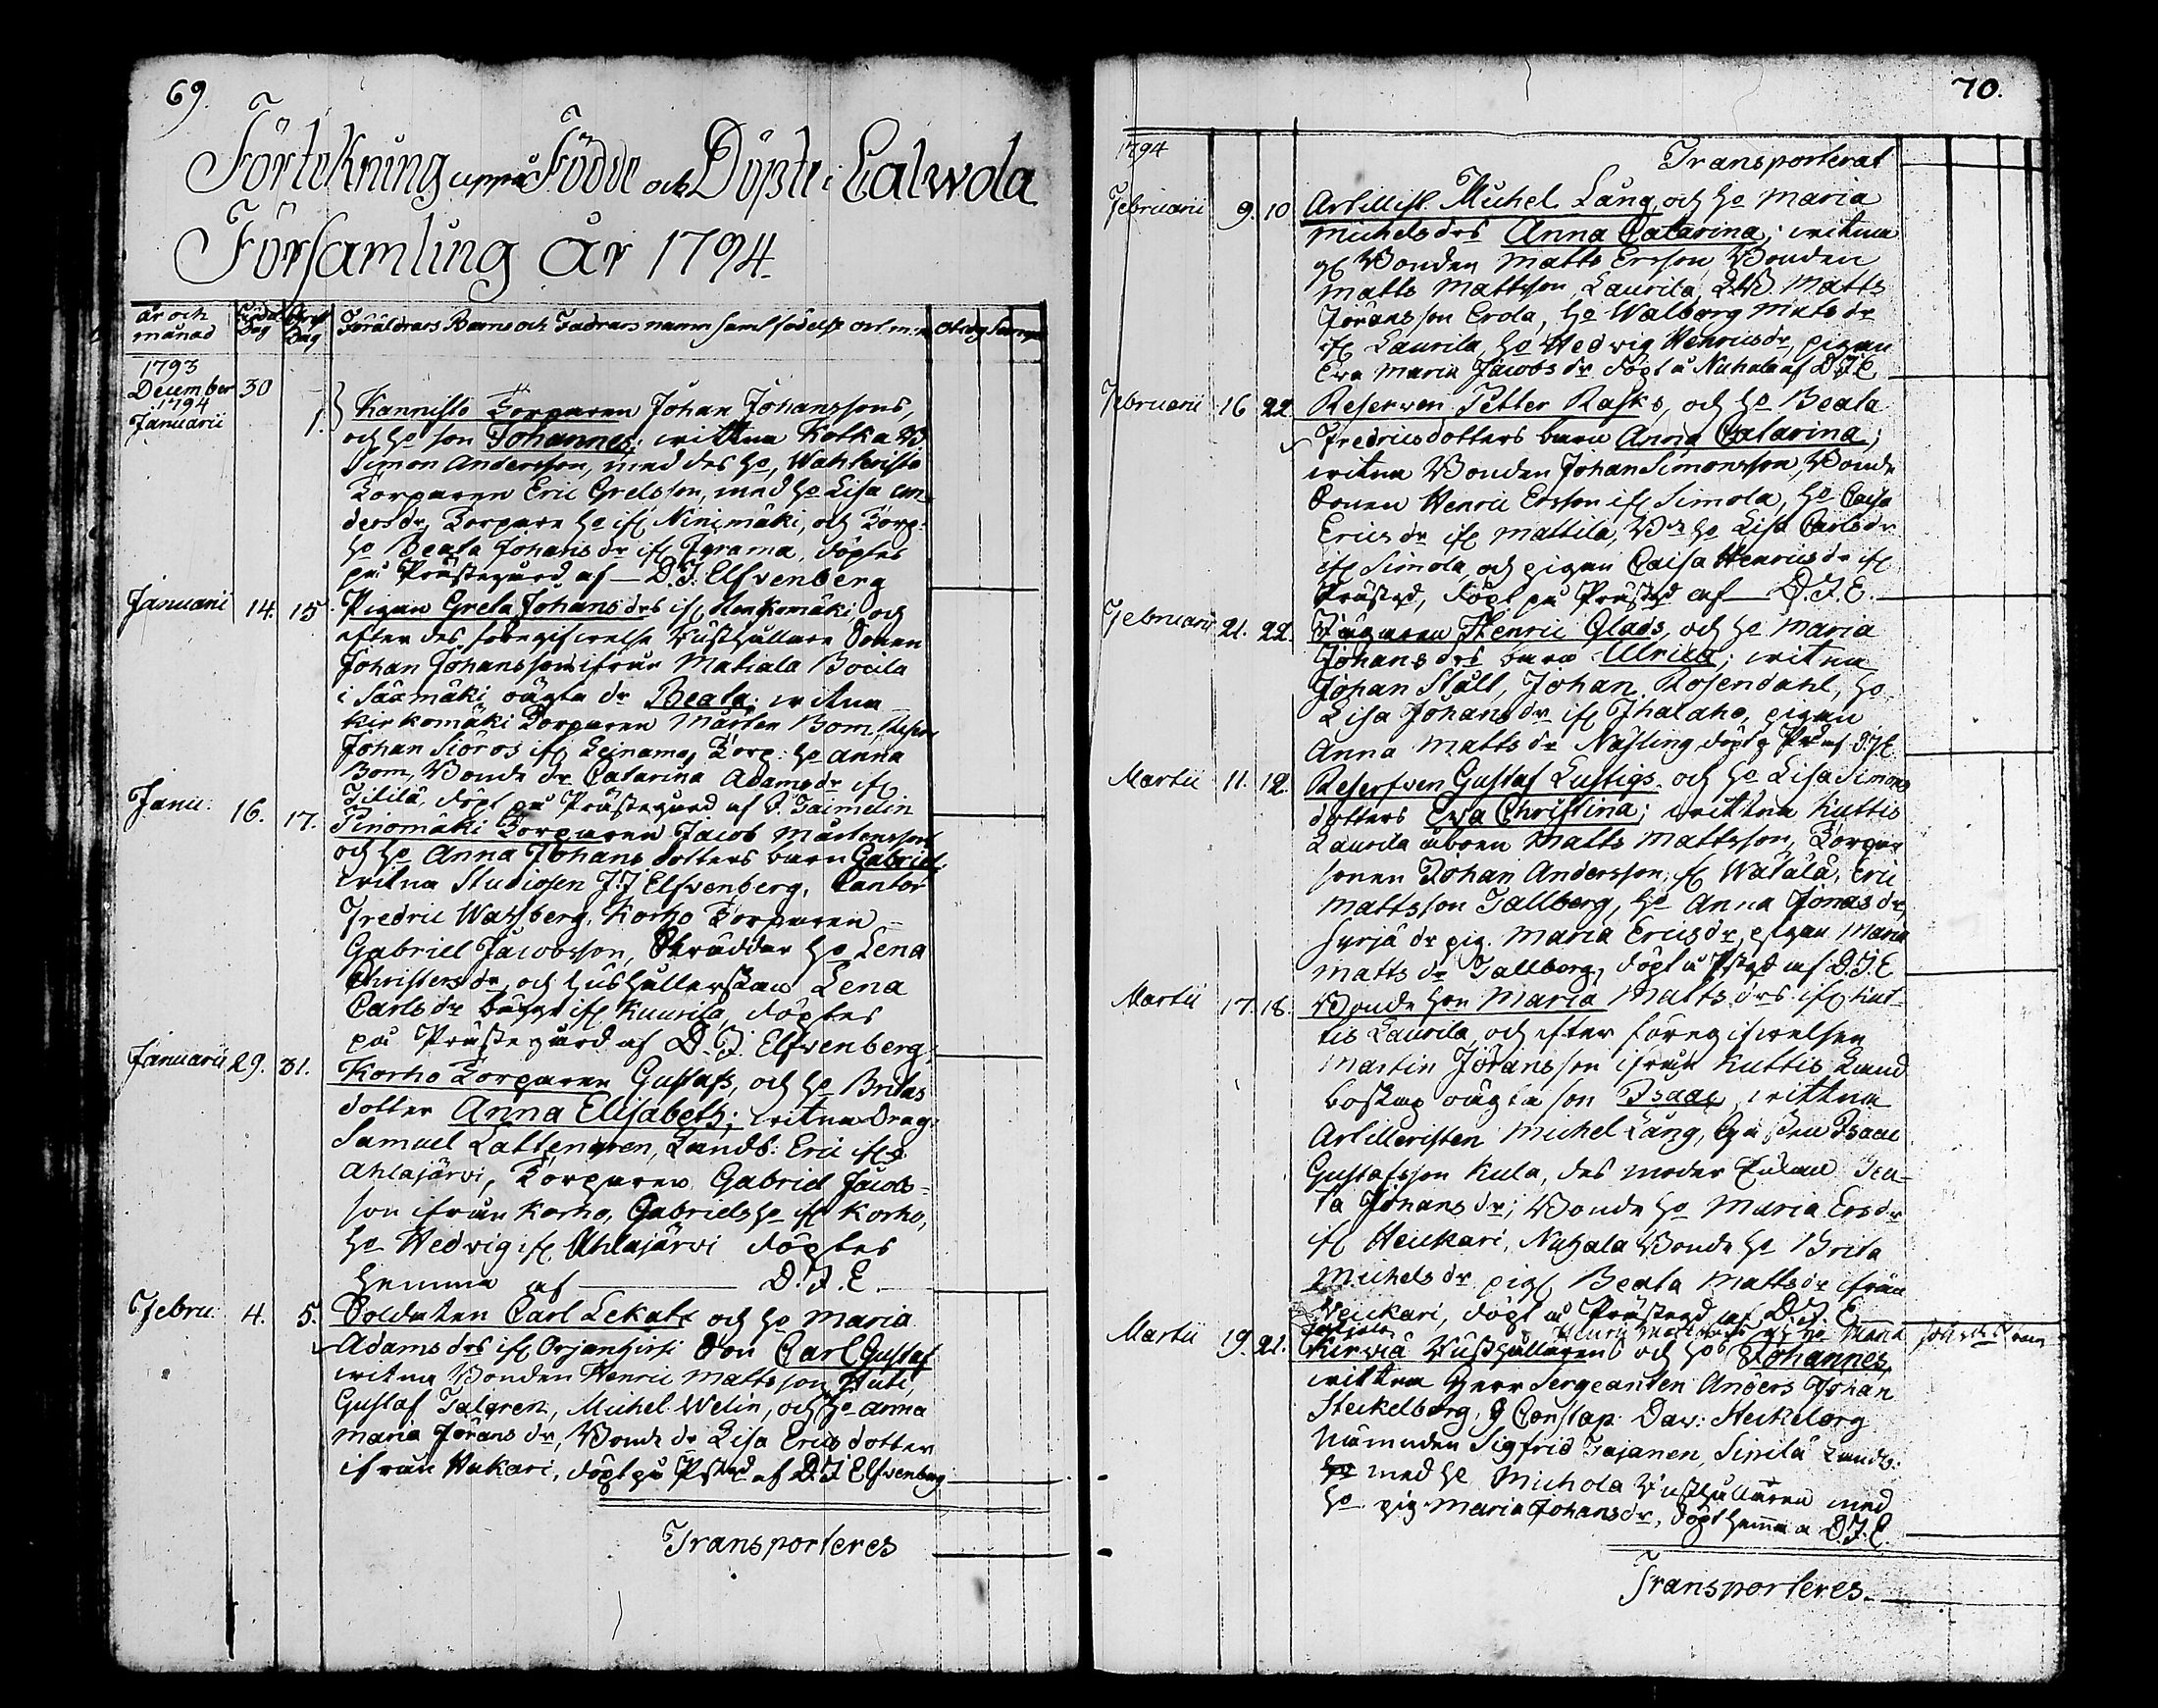 69.
Förtekning uppå Födde och Döpte i Calwola
Församling år 1794.
år och månad Född. Dag Christ. Dag Föräldrars Barns och Fadrars namn samt födelse ort m.m.
1793
December 30
1794
Januarii 1. Kannisto Torparen Johan Johanssons,
och ho son Johannes; wittna Kotka B
Simon Andersson, med des ho, Wahteristo
Torparen Eric Grelsson, med ho Lisa An-
dersdr, Torpare ho ifr Ninimäki, och Torp:
ho Beata Johansdr ifr Jyrama, döptes
på Prästegård af D. J. Elfvenberg
Januarii 14. 15 Pigan Greta Johansdrs ifr och
efter des föregifwelse Rusthållare Sonen
Johan Johansson ifrån Matiala Bocila
i Sääxmäki oägta dr Beata; witna
Kirkomäki Torparen Mårten Bom,
Johan Siöros ifr Leinama, Torp: ho Anna
Bom, Bonde dr Catarina Adamsdr ifr
döpt på Prästegård af
Janu: 16. 17. Pinomäki Torparen Jacob Mårtenssons
och ho Anna Johans dotters barn Gabriel;
witna Studiosen J. J Elfvenberg, Cantor
Fredric Wassberg, Korho Torparen
Gabriel Jacobsson, Skräddar ho Lena
Christersdr, och hushållerskan Lena
Carlsdr bägge ifr Kuurila, döptes
på Prästegård af D. J. Elfvenberg
Januarii 29. 31. Korho Torparen Gustafs, och ho Britas
dotter Anna Elisabeth; witna Drag:
Samuel Lattengren, Landb: Eric ifr
Ahlajärvi, Torparen Gabriel Jacobs-
son ifrån Korho, Gabriels ho ifr Korho,
ho Hedvig ifr Ahlajärvi döptes
hemma af D. J. E.
Febru: 4. 5. Soldaten Carl Lekate och ho Maria
Adamsdrs ifr Orjanhirsi Son Carl Gustaf
witna Bonden Henric Mattsson Huti,
Gustaf Talgren, Michel Welin, och ho Anna
Maria Jöransdr, Bonde dr Lisa Ericsdotter
ifrån Hakari, döpt på Pstgd af D. J Elfvenberg
Transporteres
70.
1794
Transporterat
Februarii 9. 10 Artillist. Michel Lång och ho Maria
Michelsdrs Anna Catarina; witna
gl Bonden Matts Ersson, Bonden
Matts Mattsson Laurila, Matts
Jöransson Erola, ho Walborg Matsdr
ifr Laurila, ho Hedvig Henricsdr, pigan
Eva Maria Jacobsdr döpt å Nuhala af D. J E
Februarii 16 22 Reserven Petter Rasks, och ho Beata
Fredricsdotters barn Anna Catarina;
witna Bonden Johan Simonsson, Bonde
Sonen Henric Ersson ifr Simola, ho Caisa
Ericsdr ifr Mattila, ho Lisa Carlsdr
ifr Simola, och pigan Caisa Henricsdr ifr
Prästgd, döpt på Prästgd af D. J. E.
Februarii 21. 22. Henric Glads, och ho Maria
Johansdrs barn Ulrica; witna
Johan Ståll, Johan Rosendahl, ho
Lisa Johansdr ifr Ihalaho, pigan
Anna Mattsdr Näsling döpt
Martii 11. 12. Reserfven Gustaf Lustigs och ho Lisa Simons
dotters Eva Christina; wittna Kuttis
Laurila åboen Matts Mattsson, Torpar
sonen Johan Andersson ifr Wätälä, Eric
Mattsson Tallberg, ho Anna Jonasdr,
Syrjä dr pig. Maria Ericsdr, pigan Maria
Mattsdr Tallberg, döpt å Pstgd af D. J. E
Martii 17. 18. Bonde hu Maria Mattsdrs ifr Kut-
tis Laurila, och efter föregifwelsen
Martin Jöransson ifrån Kuttis Land
boskap oägta son Isaac, wittna
Artilleristen Michel Lång, Isaac
Gustafsson Kula, des moder Enkan Bea-
ta Johansdr; Bonde ho Maria Ersdr
ifr Heickari, Nuhala Bonde ho Brita
Michelsdr pig. Beata Mattsdr ifrån
Heickari, döpt å Prästegd af D. J. E
Martii 19. 21. Kirviä Rusthållarens och ho Johannes,
wittna Herr Sergeanten Anders Johan
Steckelberg, Constap. Dav: Steckelberg
Nämnden Sigfrid Tajanen, Sinilä Landb:
med ho Michola Rusthållaren med
ho pig. Maria Johansdr, döpt hema a D. J. E.
Transporteres